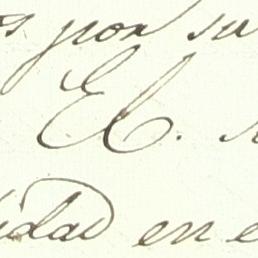 por su
E.
idad en e